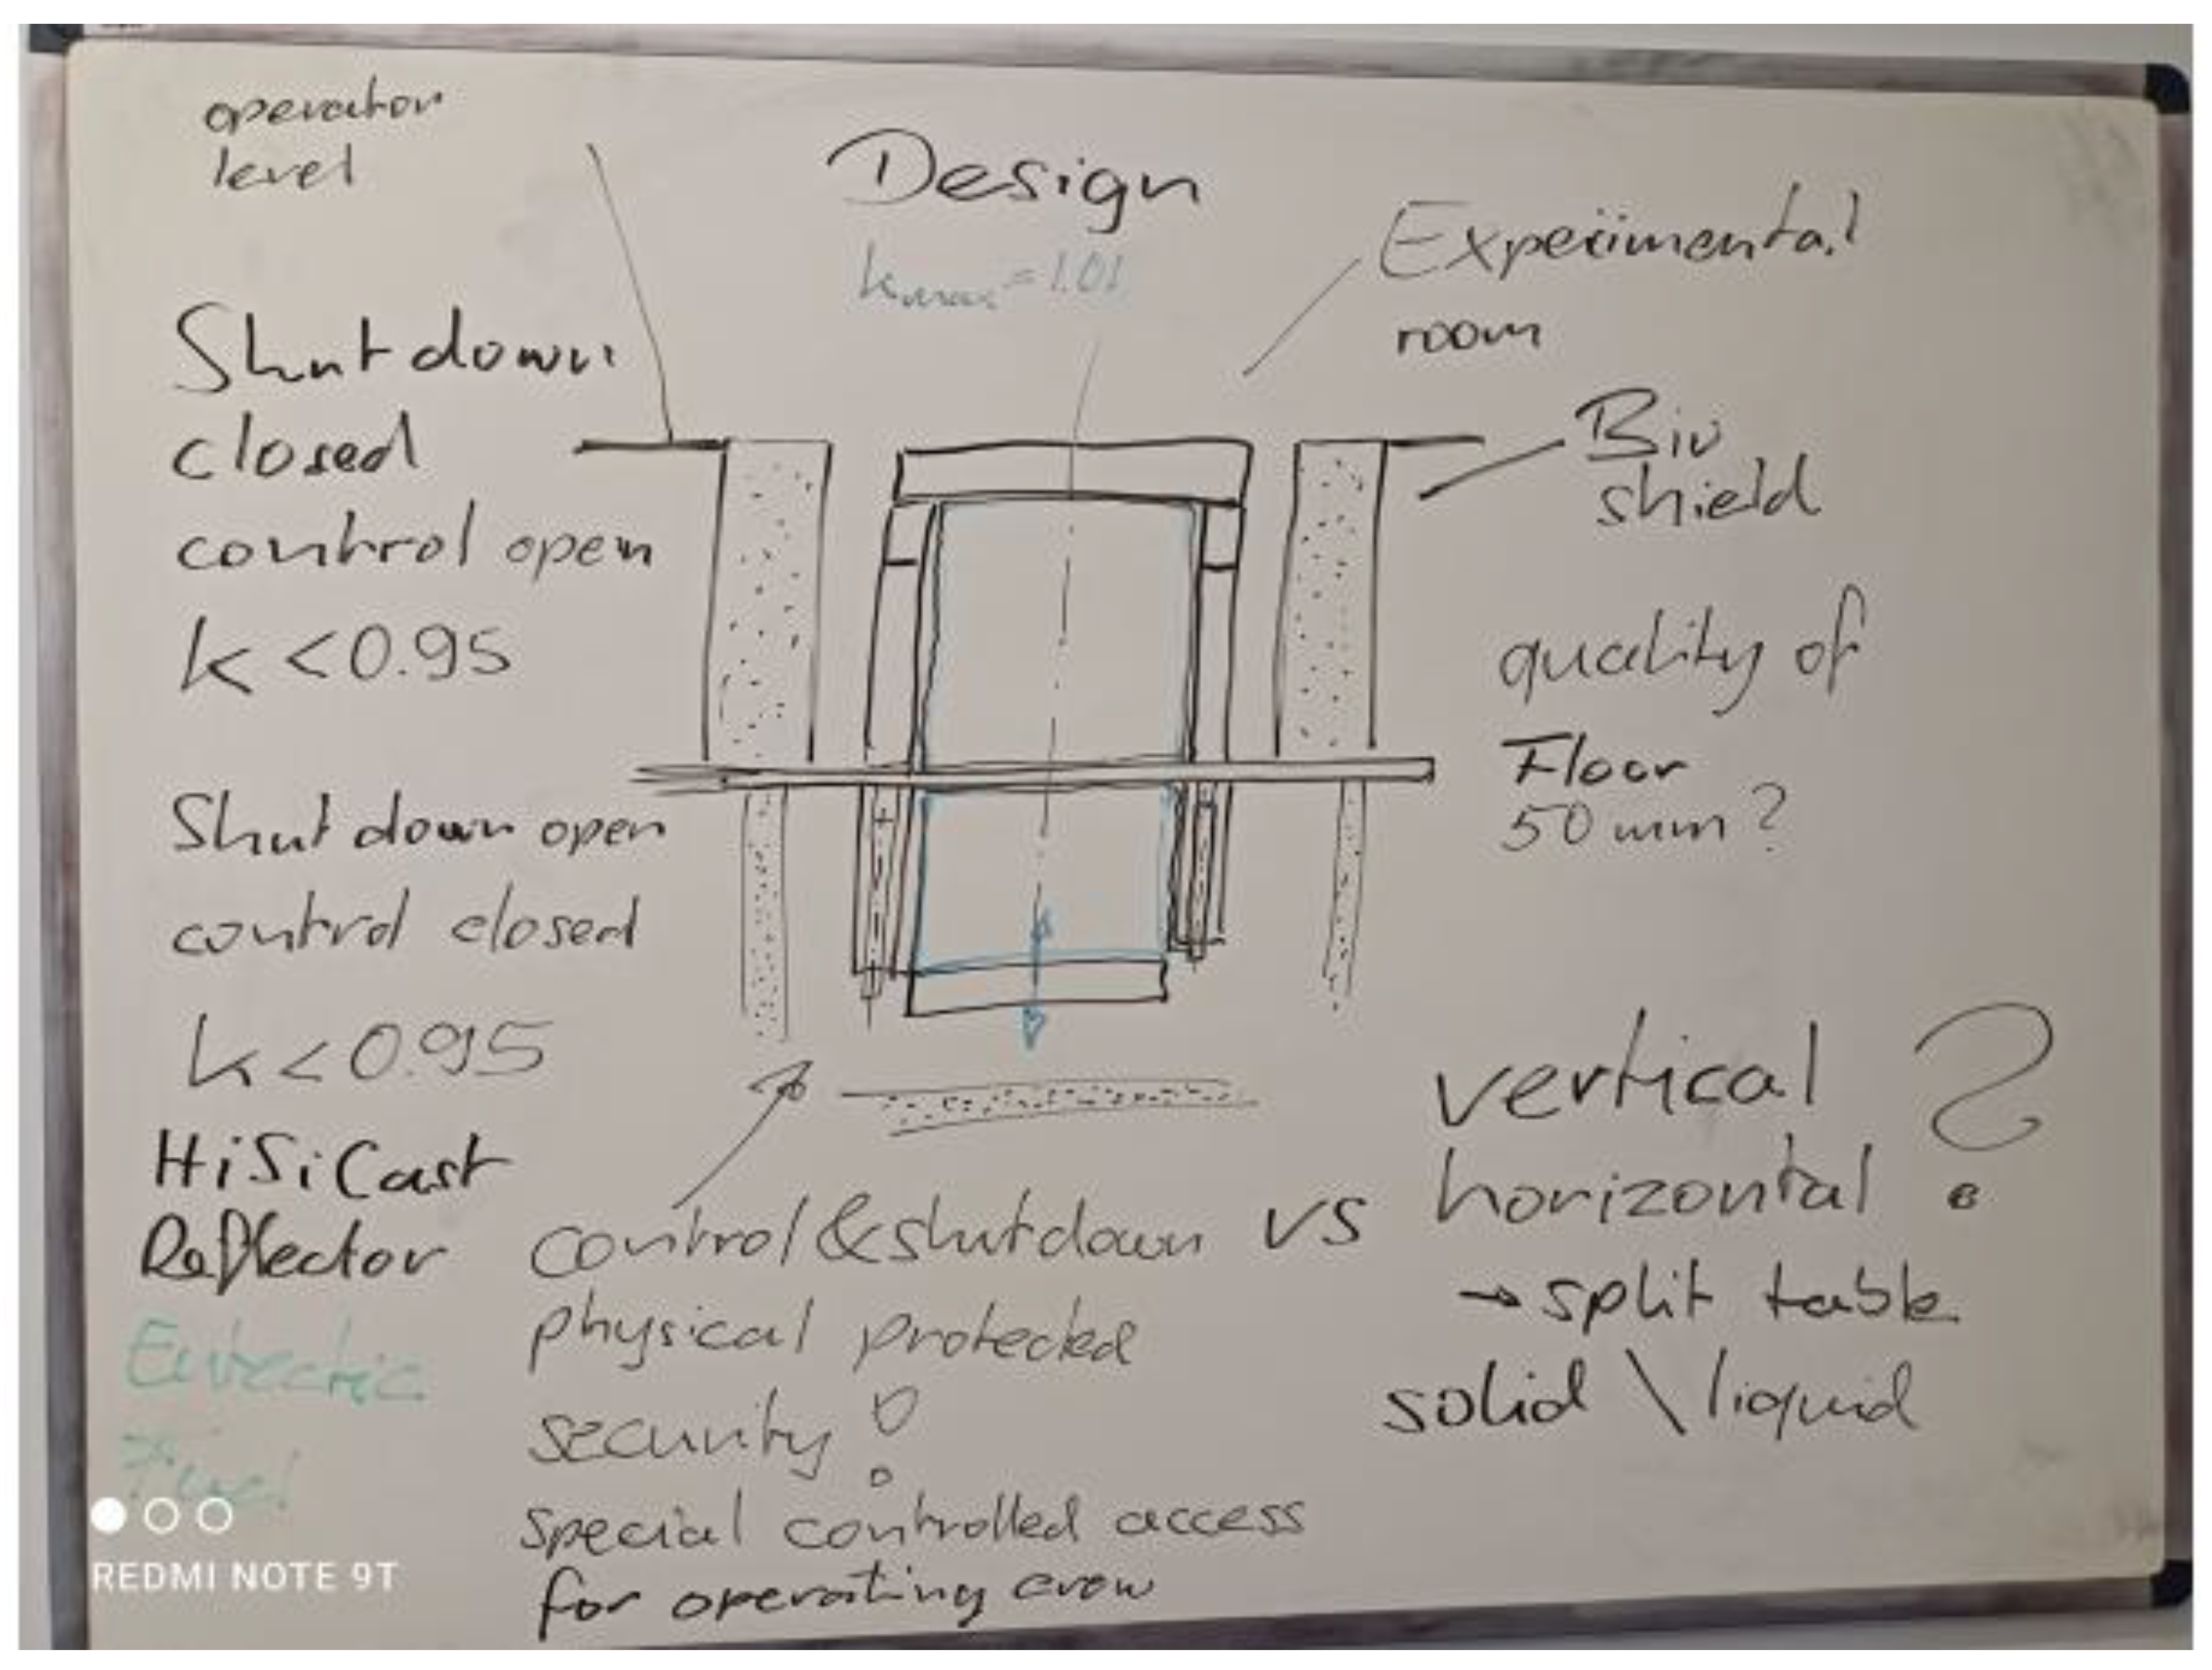 operator
level
Design
kmax = 1.01
Experimental
room
Shutdown
closed
control open
k < 0.95
Bio
shield
quality of
Floor
50 mm?
Shutdown open
control closed
k < 0.95
HiSiCast
Reflector
Eutectic
Fuel
control & shutdown
physical protected
security !
special controlled access
for operating crew
vs
vertical
horizontal ?
→ split table
solid \ liquid
REDMI NOTE 9T